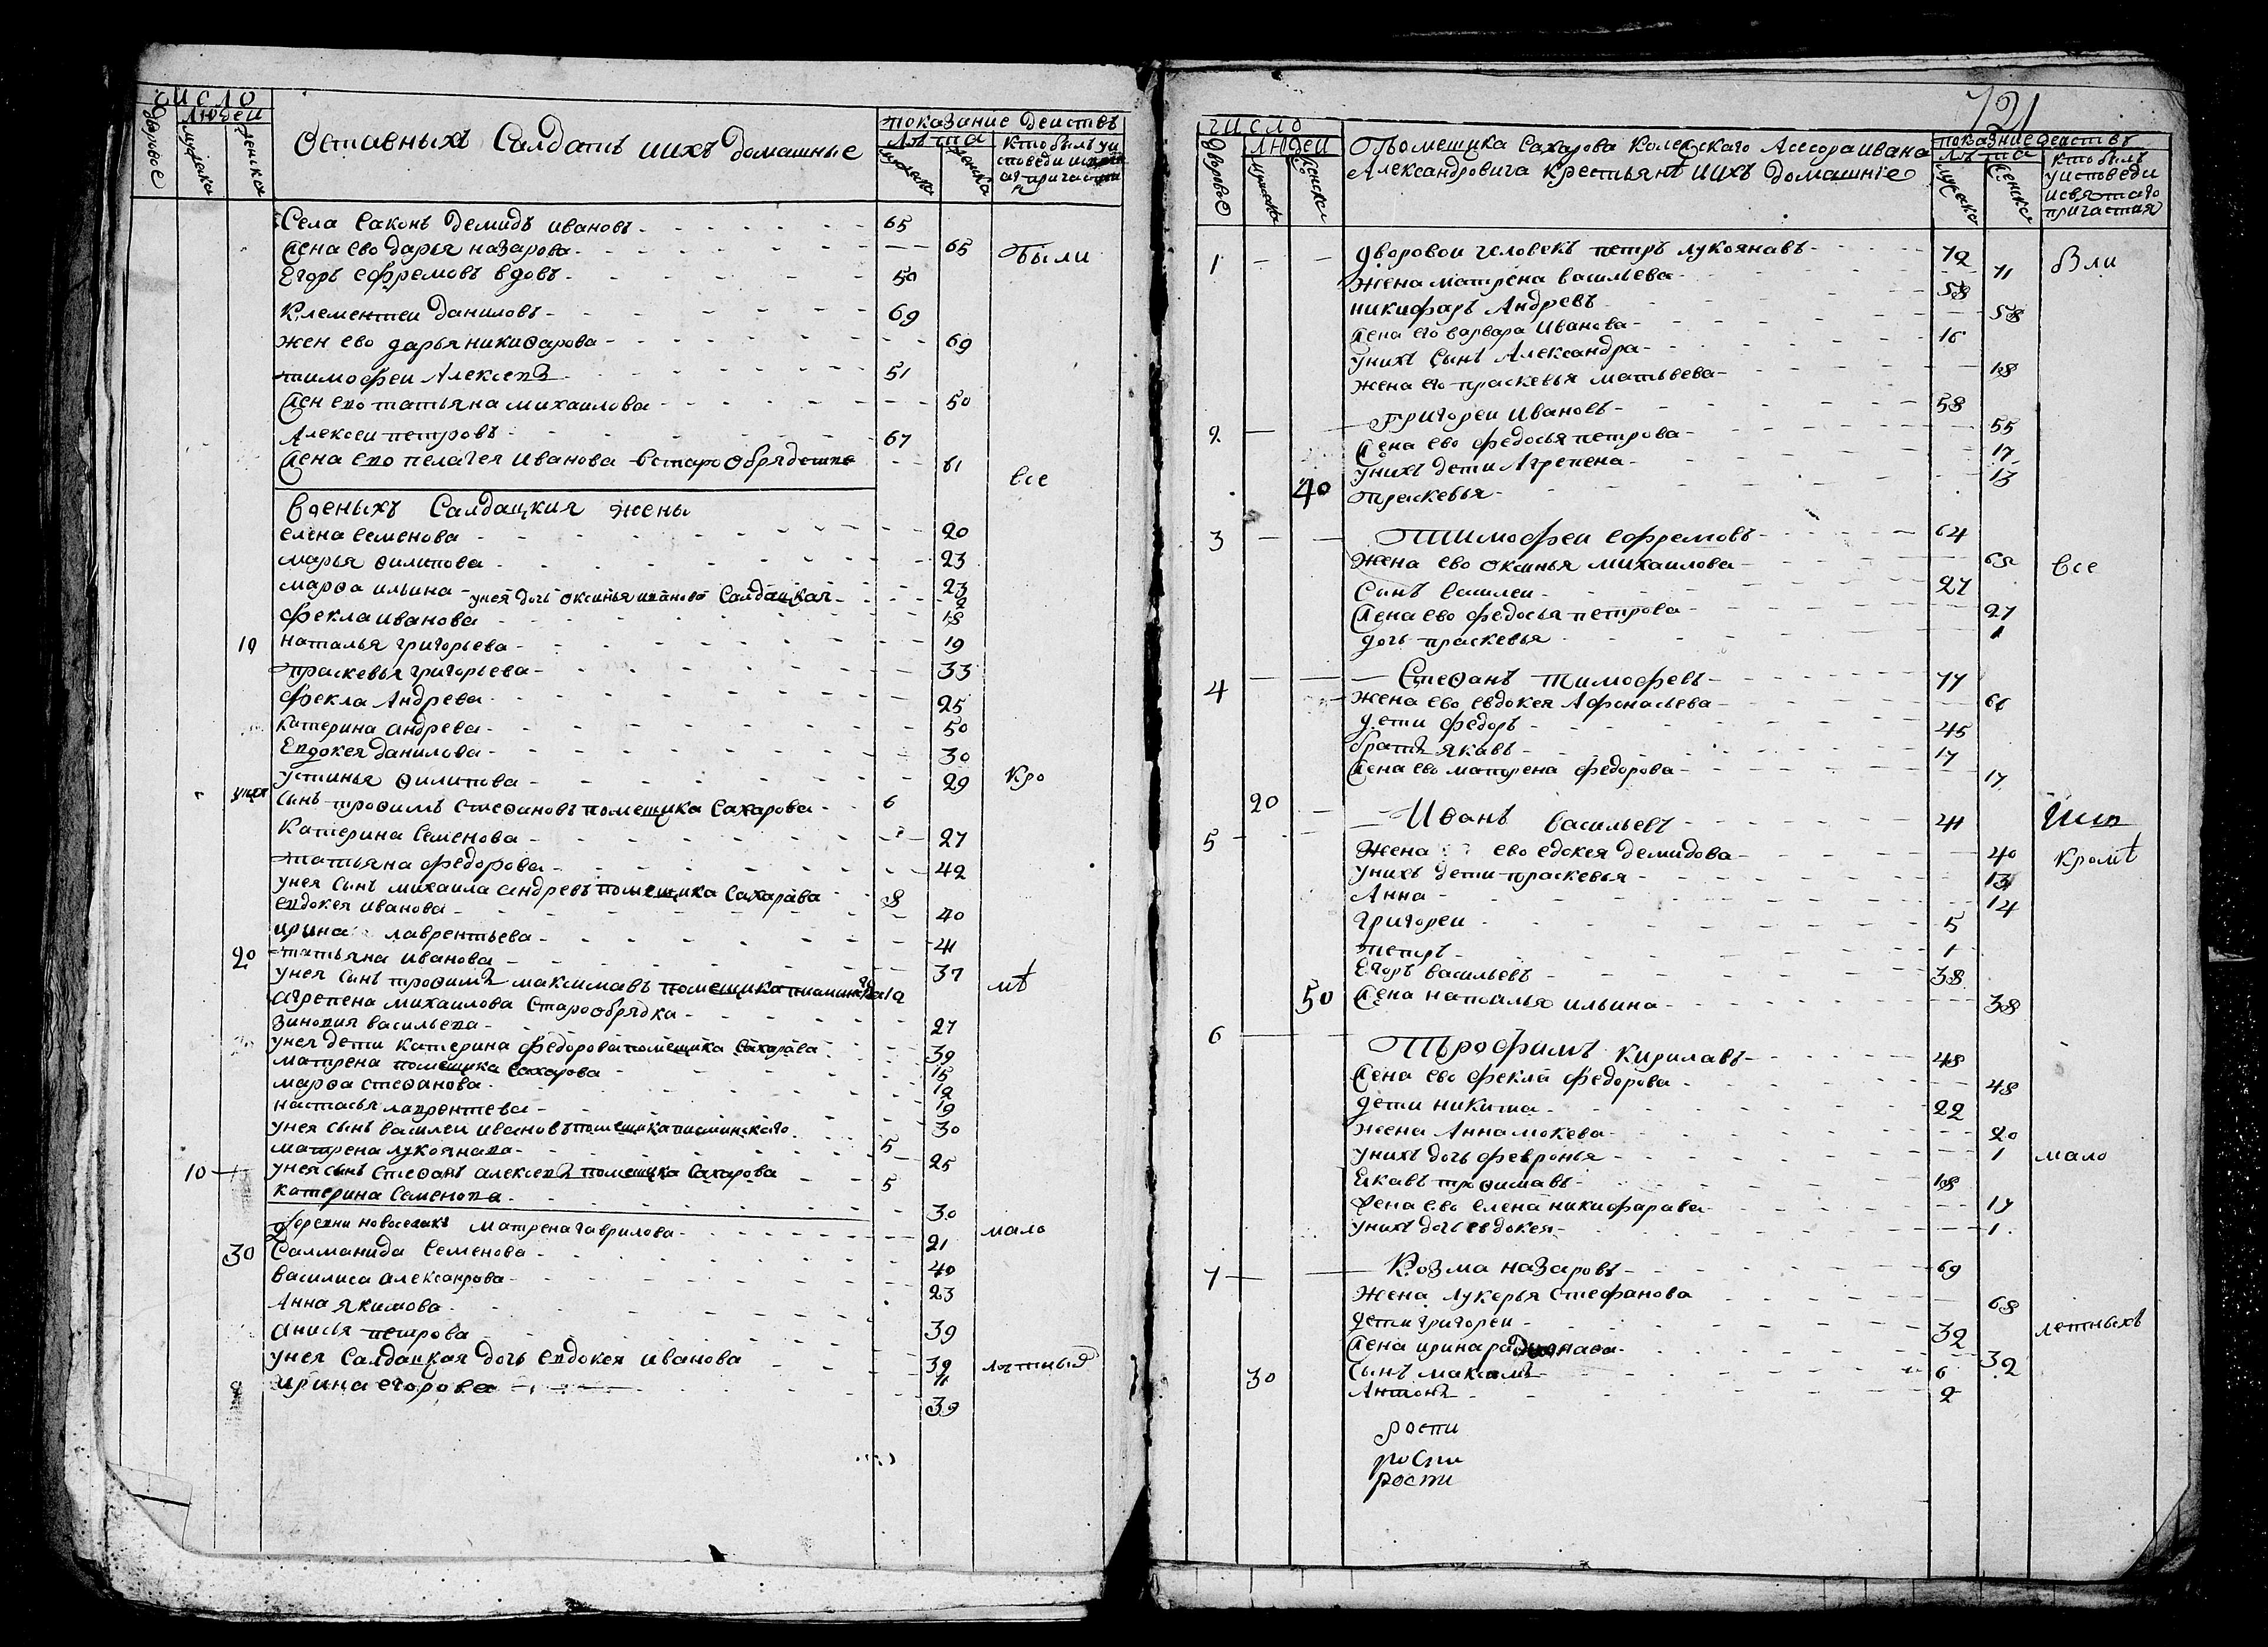 число
людей
дворовое
мужска
женска
Оставныхъ Салдатъ иихъ домашные
показание действъ
лѣта
мужска
женска
кто былъ уи
споведи исвята
ая причастия
Села Саконъ Демидъ ивановъ 65
Жена ево дарья назарова 65 Были
Егоръ ефремовъ вдовъ 50
Клементеи даниловъ 69
жен ево дарья никиѳарова 69
тимофеи Алексевъ 51
Жен ево татьяна михаилова 50
Алексеи петровъ 67
Жена ево пелагея иванова встарообрядстве 61 все
военыхъ Салдацкия жены
елена семенова 20
марья ѳилипова 23
марѳа ильина унея дочь оксинья иванова Салдацкая 23 2
фекла иванова 18
10 наталья григорьева 19
прасковья григорьева 33
фекла Андрева 25
катерина андрева 50
Евдокея данилова 30
устинья ѳилипова 29 кро
унея сынъ троѳимъ стеѳановъ помещика Сахарова 6
Катерина Семенова 27
татьяна федорова 42
унея сынъ михаила андревъ помещика Сахарова 8
евдокея иванова 40
ирина лаврентьева 41
20 татьяна иванова 37
унея сынъ троѳимъ максимавъ помещика 12 мѣ
агрепена михаилова Старообрядка 27
зиновия васильева 39
унея дети катерина федорова помещика Сахарова 15
матрена помещика Сахарова 12
марѳа стеѳанова 19
настасья лаврентева 30
унея сынъ василеи ивановъ помещика писминскаго 5
матрена лукоянава 25
10 унея сынъ Стеѳанъ алексевъ помещика Сахарова 5
катерина семенова 30
деревни новоселакъ матрена гаврилова 21 мало
30 Салманида Семенова 40
василиса александрова 23
Анна якимова
анисья петрова 39
унея Салдацкая дочь евдокея иванова 39 11 летныхъ
ирина егорова 39
721
число
людей
дворовое
мужска
женска
Помещика Сахарова Колежскаго Асесора ивана
Александровича крестьянъ иихъ домашніе
показание действъ
лѣта
мужска
женска
кто былъ
уисповеди
исвятаго
причастия
1 дворовои человекъ петръ лукоянавъ 72 Были
жена матрена васильева 71
никифаръ Андревъ 58
жена его варвара иванова 58
унихъ сынъ Александра 16
жена его праскевья матьвева 18
2 Григореи ивановъ 58
Жена ево федосья петрова 55
унихъ дети Агрепена 17
40 праскевья 13
3 Тимофеи ефремовъ 64
жена ево оксинья михаилова 62 все
сынъ василеи 27
жена ево федосья петрова 27
дочь праскевья 1
4 Стеѳанъ тимофевъ 77
жена ево евдокея Афонасьева 66
дети федоръ 45
братъ якавъ 17
жена ево матрена федорова 17
20
5 Иванъ васильевъ 41
Жена ево едокея демидова 40 кромѣ
унихъ дети праскевья 13
Анна 14
григореи 5
петръ 1
Егоръ васильевъ 38
50 Жена наталья ильина 38
6 Трофимъ кирилавъ 48
Жена ево фекла федорова 48
дети никита 22
жена Анна мокева 20
унихъ дочь февронья 1 мало
Екавъ троѳимавъ 18
жена ево елена никифарава 17
унихъ дочь евдокея 1
7 Козма назаровъ 69
жена лукерья стефанова 68
дети григореи 32 летныхъ
Жена ирина 32
30 сынъ максимъ 6
Антонъ 2
рости
рости
рости